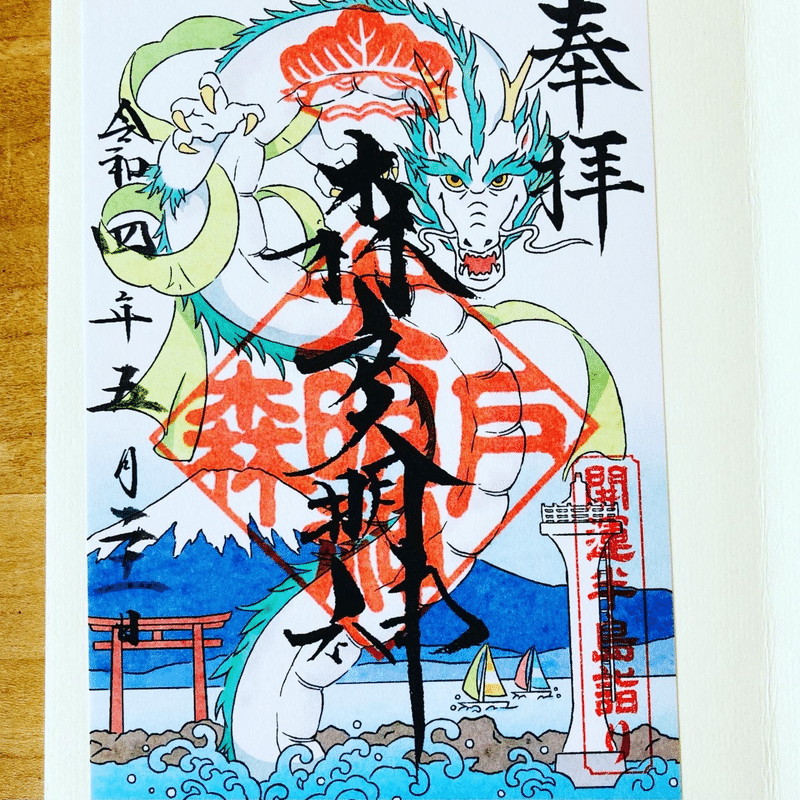 奉拝
開運半島詣り
森戸大明神
森戸大明神
令和四年五月 日